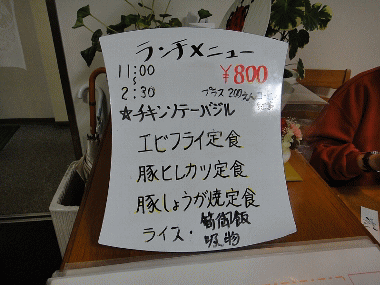 ランチメニュー
11:00 ¥800
~
2:30 プラス200えん
☆チキンソテーバジル
エビフライ定食
豚ヒレカツ定食
豚しょうが焼定食
ライス・筍御飯
吸物